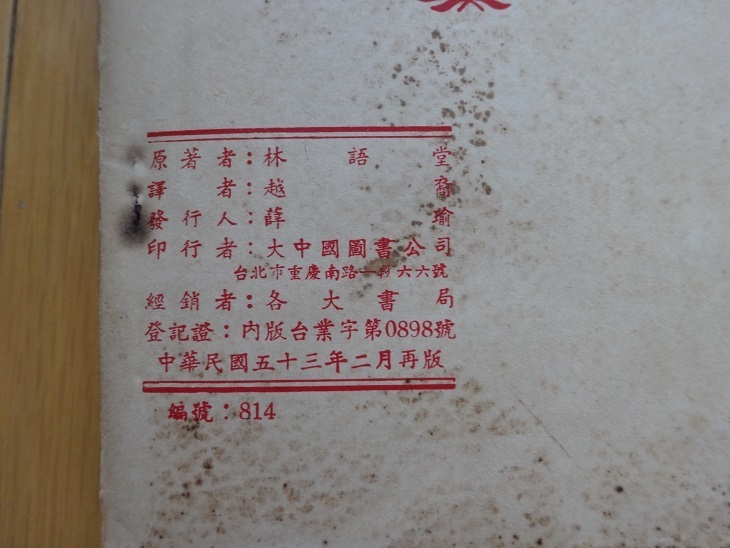 原著者：林語堂
譯者：越裔
發行人：薛瑜
印行者：大中國圖書公司
台北市重慶南路一段六六號
經銷者：各大書局
登記證：內版台業字第0898號
中華民國五十三年二月再版
編號：814